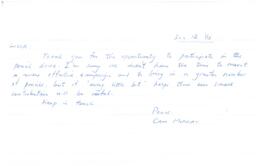 Thank you for the opportunity to participate in the
peace drive. I'm sorry we didn't have the time to mount
a more effective campaign and to bring in a greater number
of pennies, but if "every little bit" helps then our small
contribution will be useful.
Keep in touch
Peace